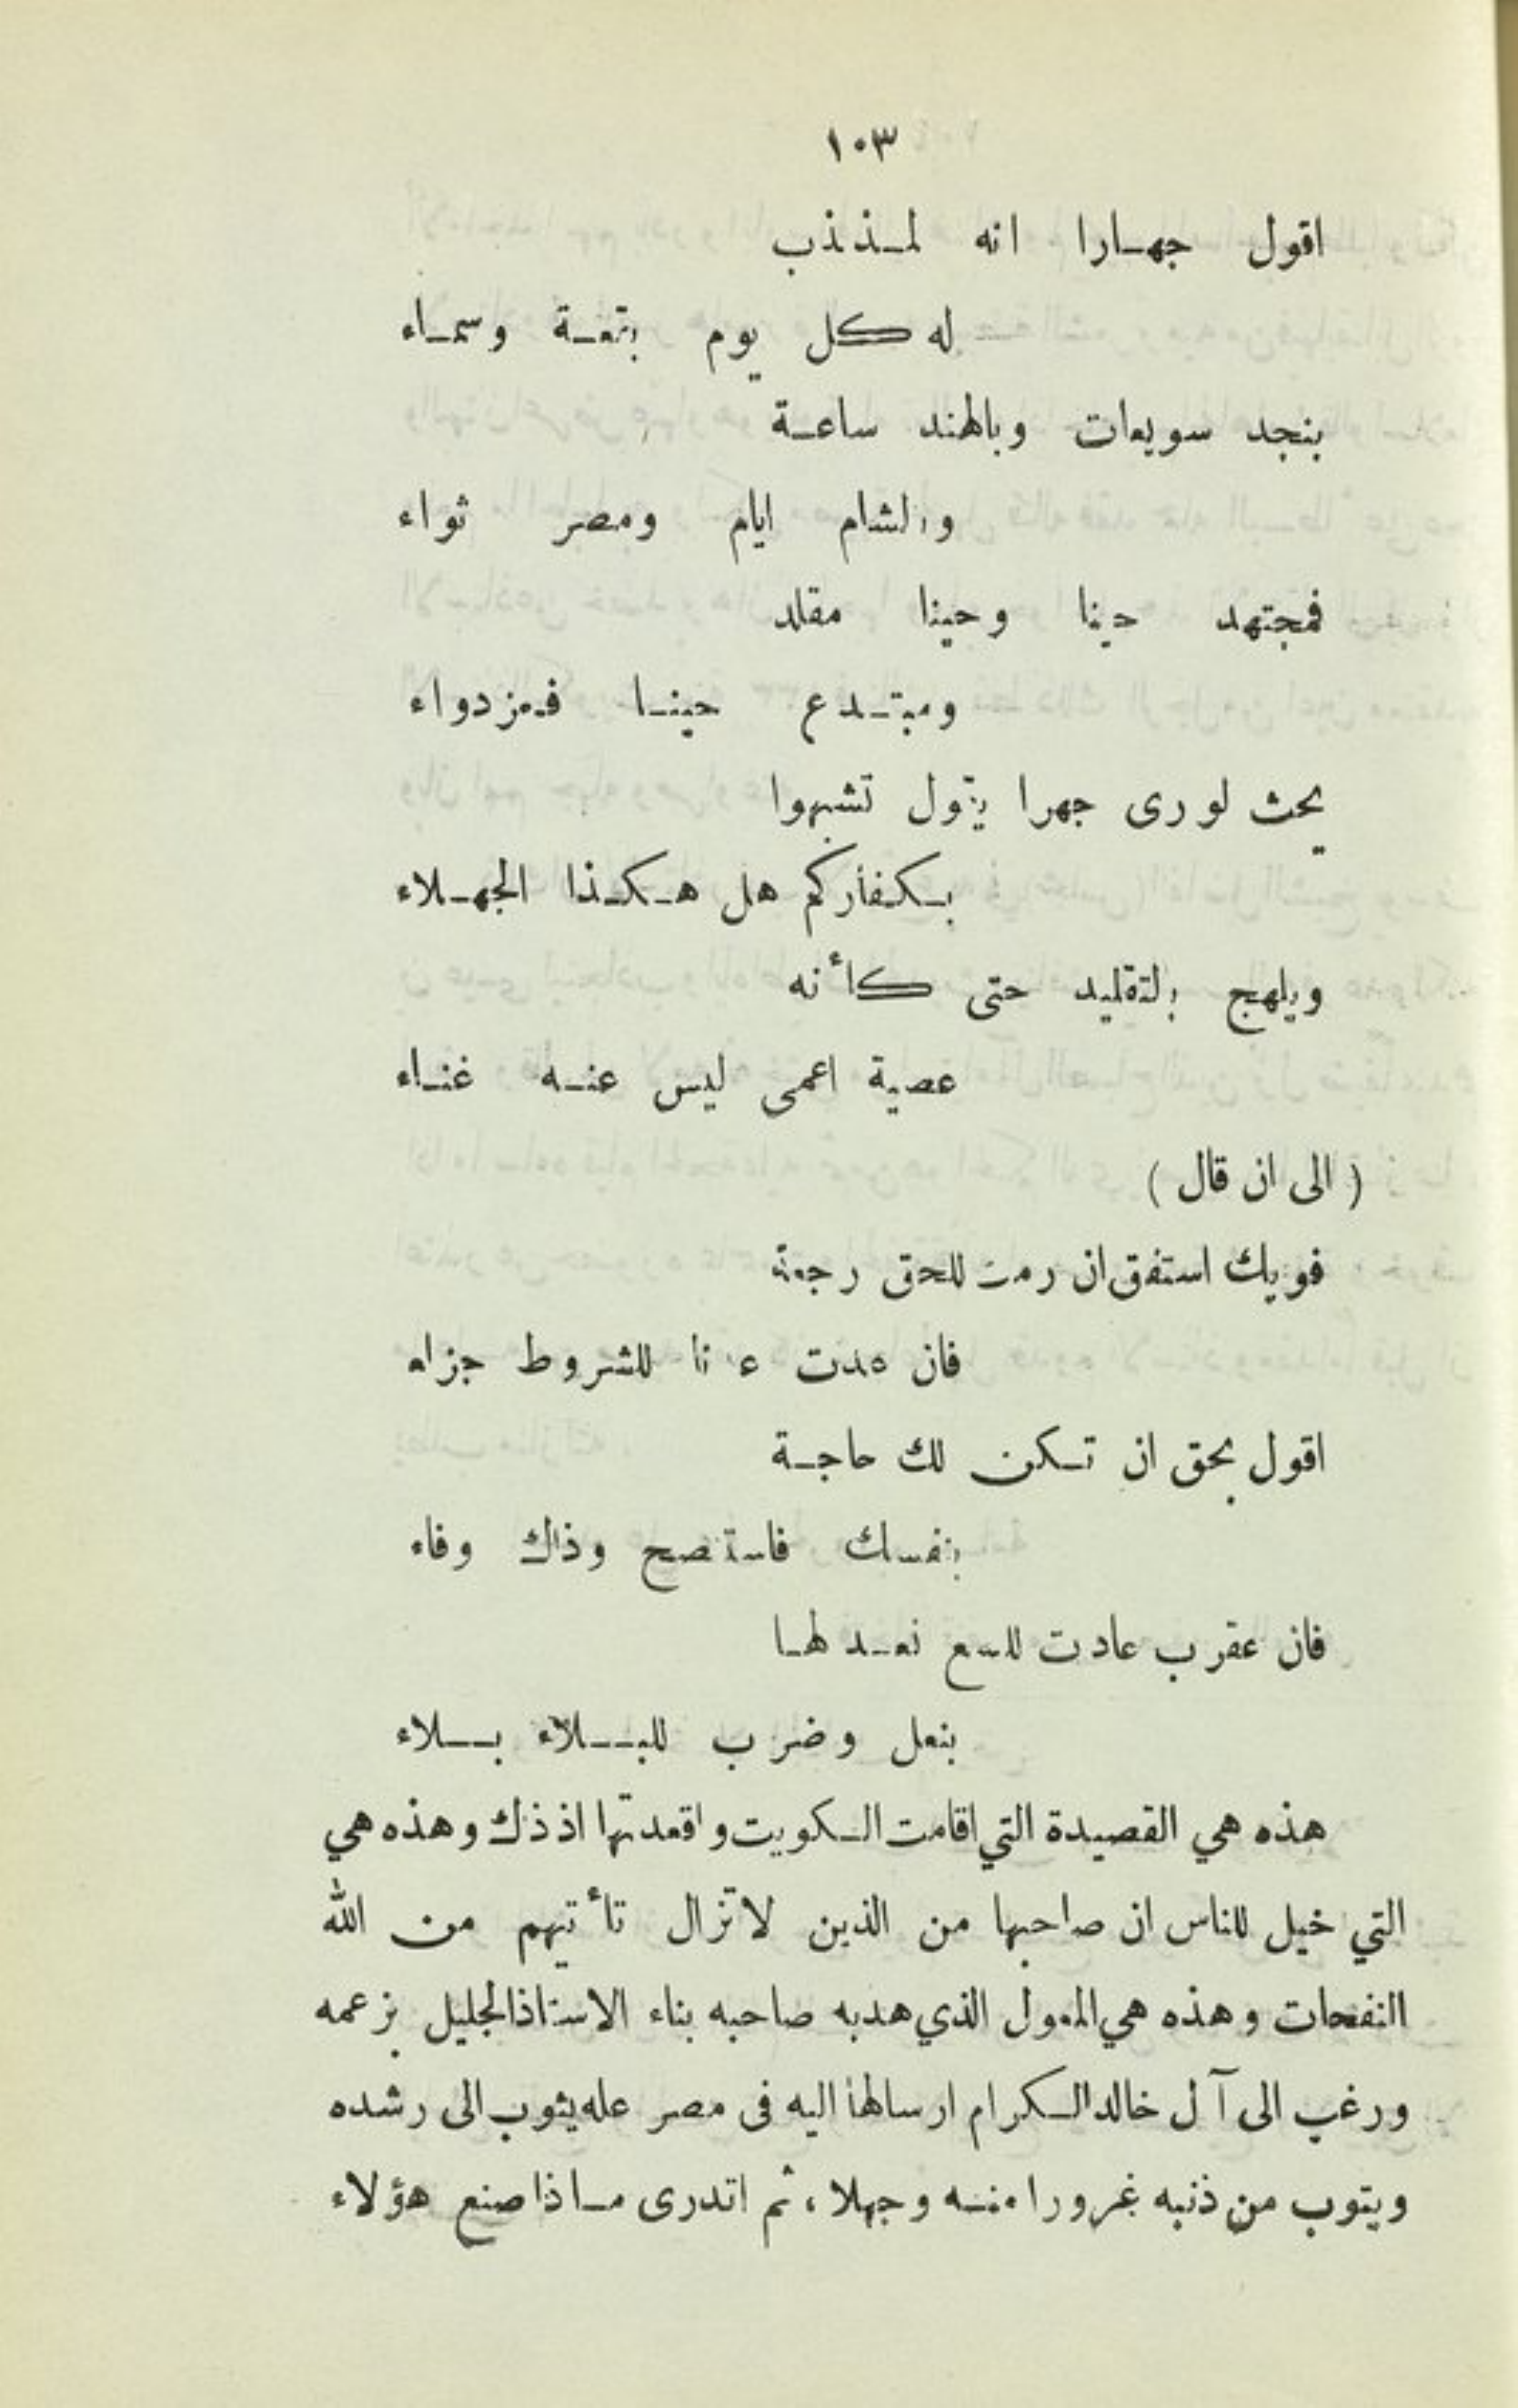 ١٠٣
اقول جهارا انه لمذذب
له كل يوم بقعة وسماء
بنجد سويعات وبالهند ساعة
وبالشام ايام ومصر ثواء
فمجتهد حينا وحينا مقلد
ومبتدع حينا فمزدواء
يحث لورى جهرا يقول تشبهوا
بكفاركم هل هكذا الجهلاء
ويلهج بالتقليد حتى كأنه
عصية اعمى ليس عنه غناء
( الى ان قال )
فويك استفق ان رمت للحق رجعة
فان عدت عدنا للشروط جزاء
اقول بحق ان تكن لك حاجة
بنفسك فاستنصح وذاك وفاء
فان عقرب عادت للسع نعد لها
بنعل وضرب للبلاء بلاء
هذه هي القصيدة التي اقامت الكويت واقعدتها اذ ذك وهذه هي
التي خيل للناس ان صاحبها من الذين لاتزال تأتيهم من الله
النفحات وهذه هي المعول الذي هدبه صاحبه بناء الاستاذالجليل بزعمه
ورغب الى آل خالدالكرام ارسالها اليه فى مصر عله يثوب الى رشده
ويتوب من ذنبه غرورا منه وجهلا، ثم اتدرى ماذا صنع هؤلاء